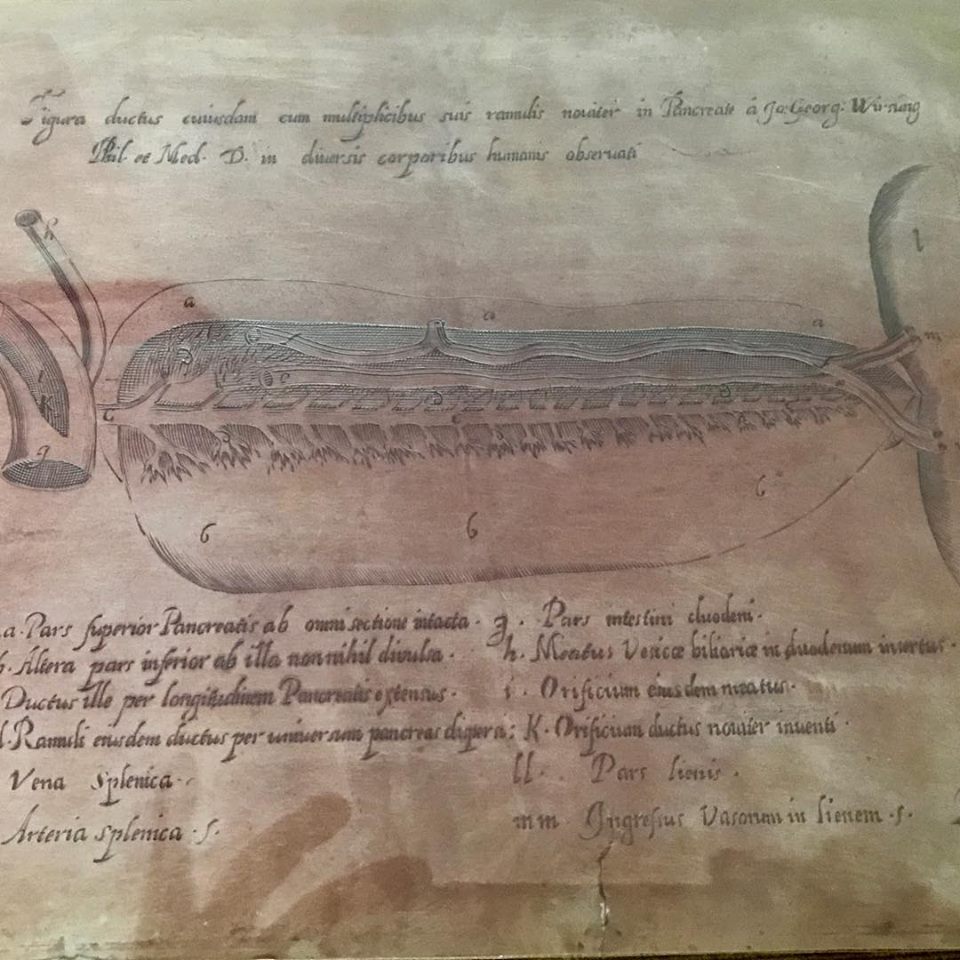 Figura ductus cuiusdam cum multiplicibus suis ramulis noviter in Pancreate â Jo: Georg: Wirsüng
Phil. et Med. D. in diversis corporibus humanis observati
h
l
a
a
a
m
i
K
g
C
c
6
6
6
a. Pars superior Pancreatis ab omni sectione intacta.
b. Altera pars inferior ab illa nonnihil divulsa.
Ductus ille per longitudinem Pancreatis extensus.
d. Ramuli eiusdem ductus per universum pancreas
Vena Splenica.
Arteria splenica. s.
g. Pars intestini duodeni.
h. Meatus Vesicæ biliariæ in duodenum insertus.
i. Orificium eiusdem meatus.
K. Orificium ductus noviter inventi.
ll. Pars lienis.
mm Ingressus Vasorum in lienem. s.